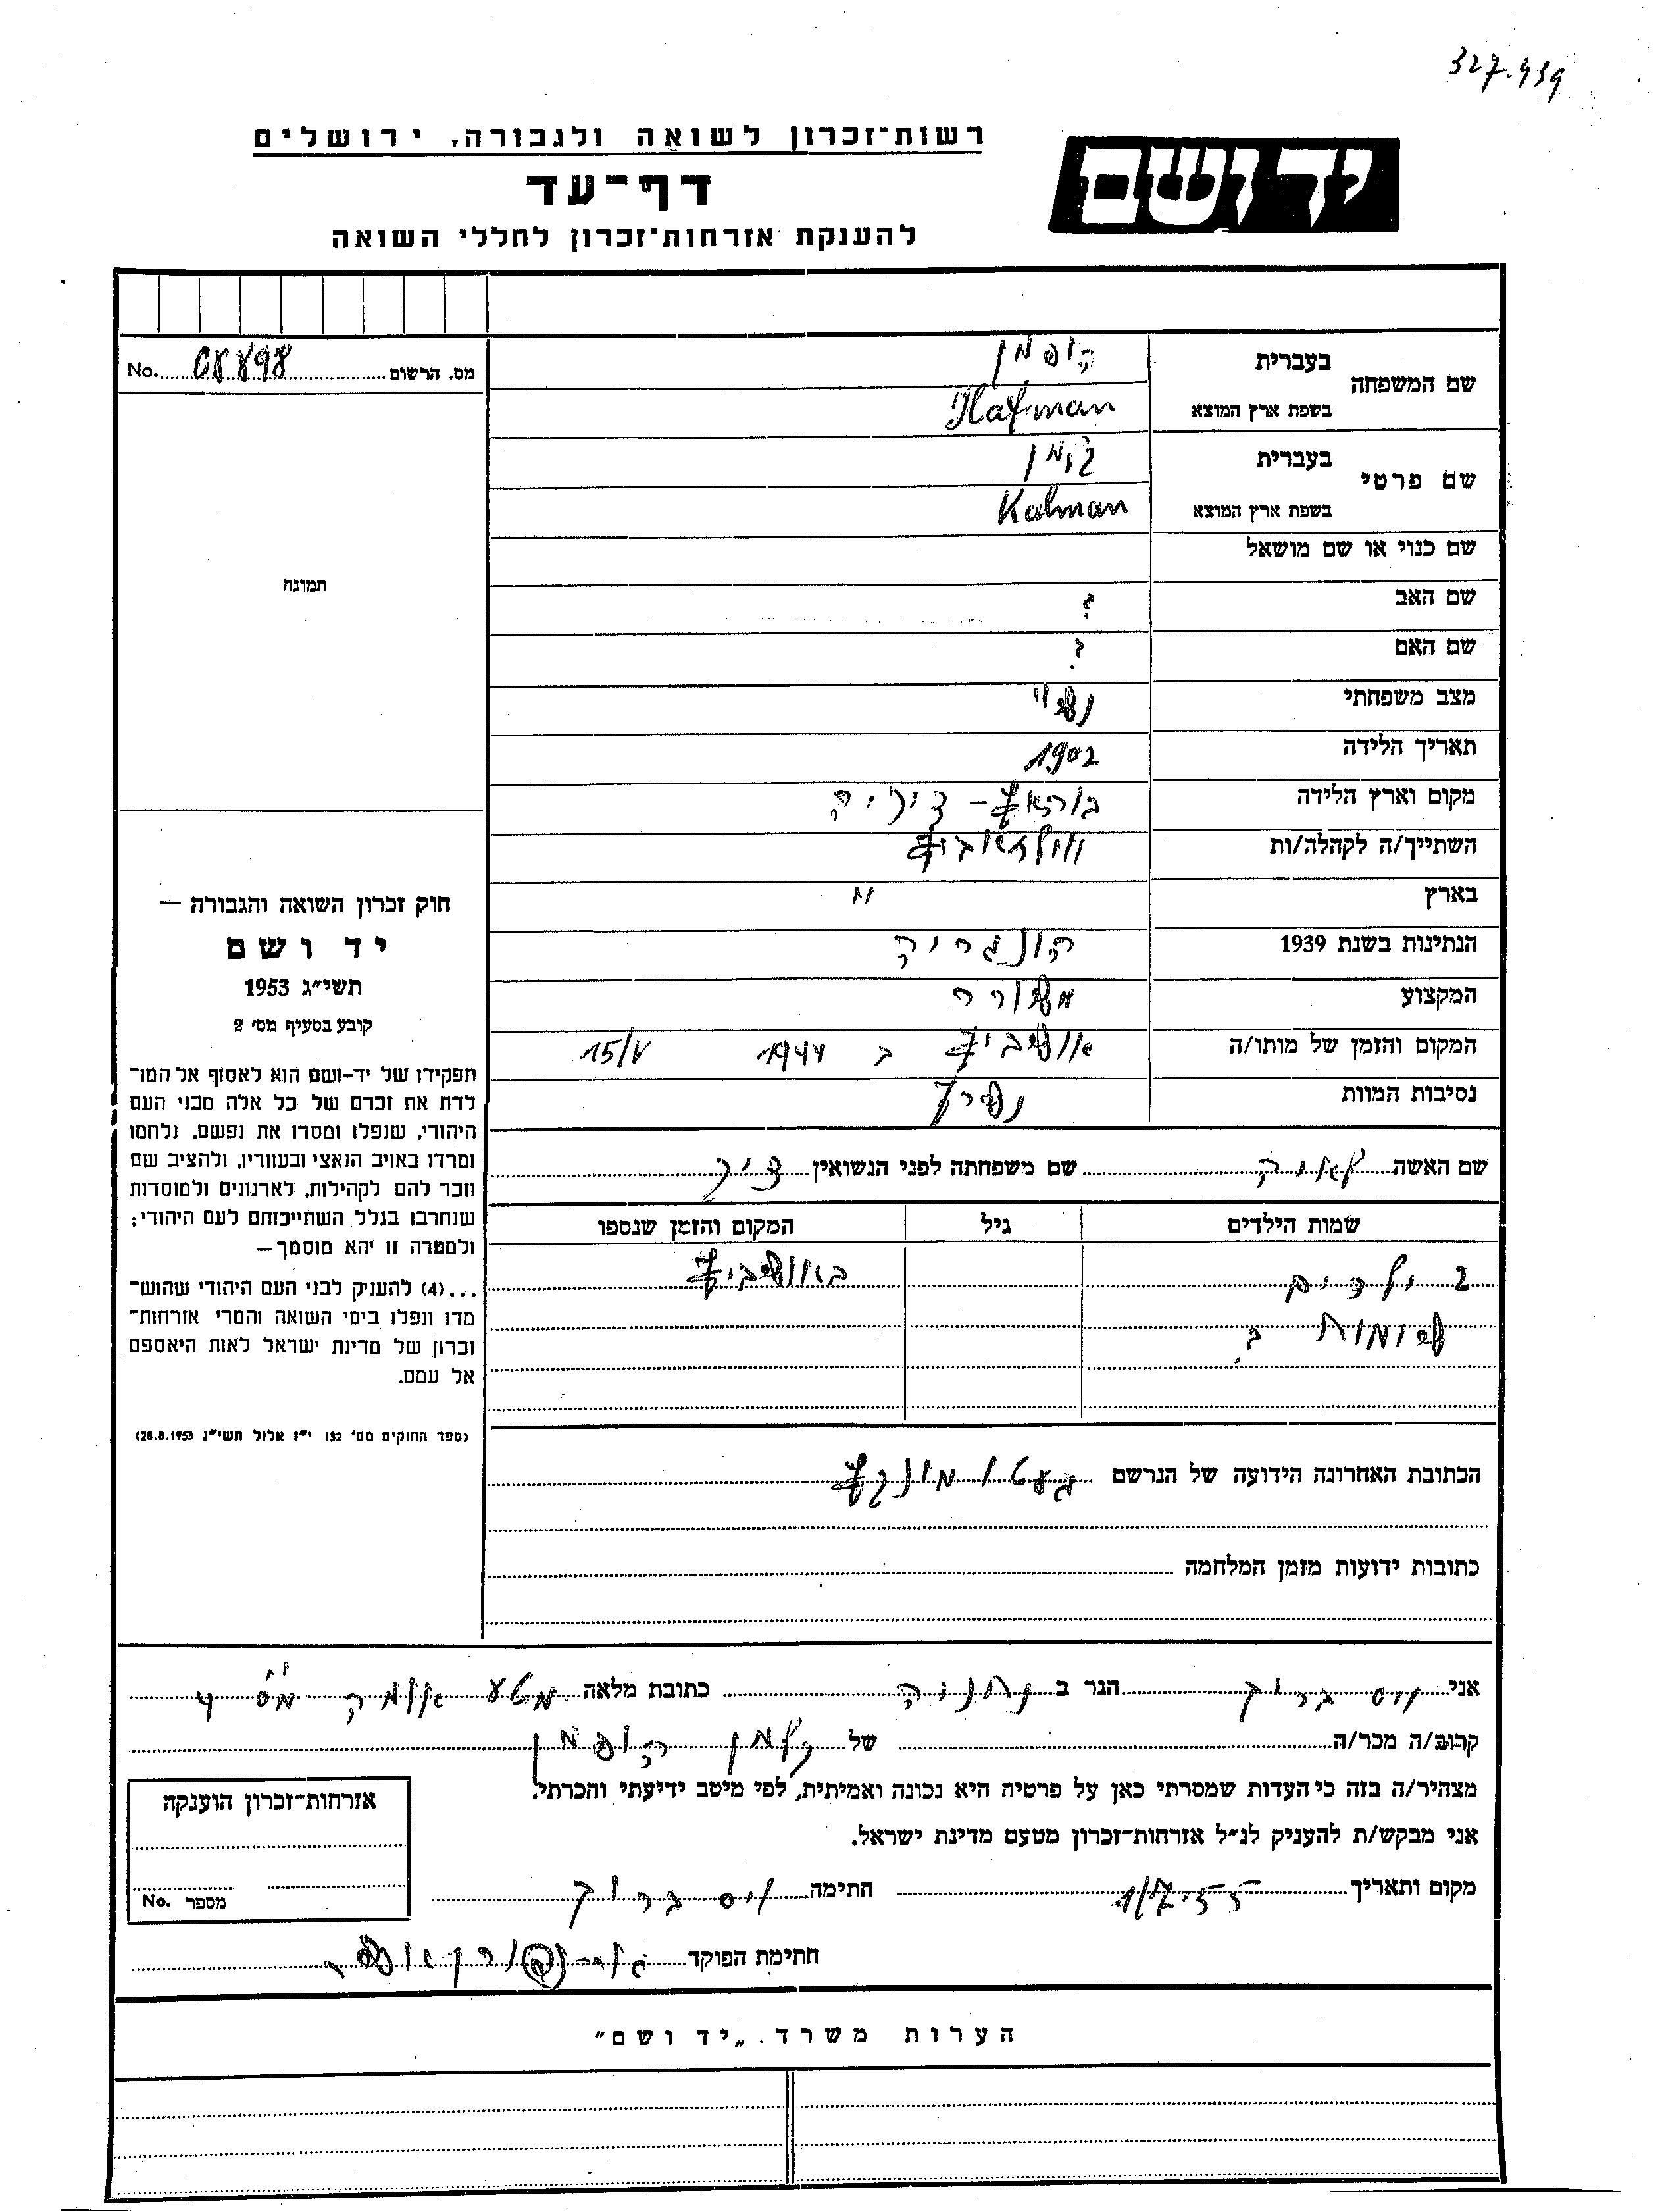 327.439
רשות־זכרון לשואה ולגבורה, ירושלים
יד ושם
דף־עד
להענקת אזרחות־זכרון לחללי השואה
שם המשפחה
בעברית הופמן
בשפת ארץ המוצא Hofman
שם פרטי
בעברית קלמן
בשפת ארץ המוצא Kalman
שם כנוי או שם מושאל
שם האב ?
שם האם ?
מצב משפחתי נשוי
תאריך הלידה 1902
מקום וארץ הלידה
השתייך/ה לקהלה/ות
בארץ "
הנתינות בשנת 1939 הונגריה
המקצוע
המקום והזמן של מותו/ה אושביץ ב 1944 15/V
נסיבות המוות נשרף
מס. הרשום 08898 No.
תמונה
חוק זכרון השואה והגבורה —
יד ושם
תשי״ג 1953
קובע בסעיף מס׳ 2
תפקידו של יד-ושם הוא לאסוף אל המו־
לדת את זכרם של כל אלה מבני העם
היהודי, שנפלו ומסרו את נפשם, נלחמו
ומרדו באויב הנאצי ובעוזריו, ולהציב שם
וזכר להם לקהילות, לארגונים ולמוסדות
שנחרבו בגלל השתייכותם לעם היהודי;
ולמטרה זו יהא מוסמך—
...(4) להעניק לבני העם היהודי שהוש־
מדו ונפלו בימי השואה והמרי אזרחות־
זכרון של מדינת ישראל לאות היאספם
אל עמם.
(ספר החוקים מס׳ 132 י״ז אלול תשי״ג 28.8.1953)
שם האשה שם משפחתה לפני הנשואין
שמות הילדים גיל המקום והזמן שנספו
2 ילדים באושביץ
שמות ?
הכתובת האחרונה הידועה של הנרשם געטו מונקץ
כתובות ידועות מזמן המלחמה
אני וייס ברוך הגר ב נתניה כתובת מלאה מס׳ 4
קרוב/ה מכר/ה של קלמן הופמן
מצהיר/ה בזה כי העדות שמסרתי כאן על פרטיה היא נכונה ואמיתית, לפי מיטב ידיעתי והכרתי.
אני מבקש/ת להעניק לנ״ל אזרחות־זכרון מטעם מדינת ישראל.
מקום ותאריך 1/7 55 חתימה וייס ברוך
חתימת הפוקד
אזרחות־זכרון הוענקה
מספר No.
הערות משרד „יד ושם"